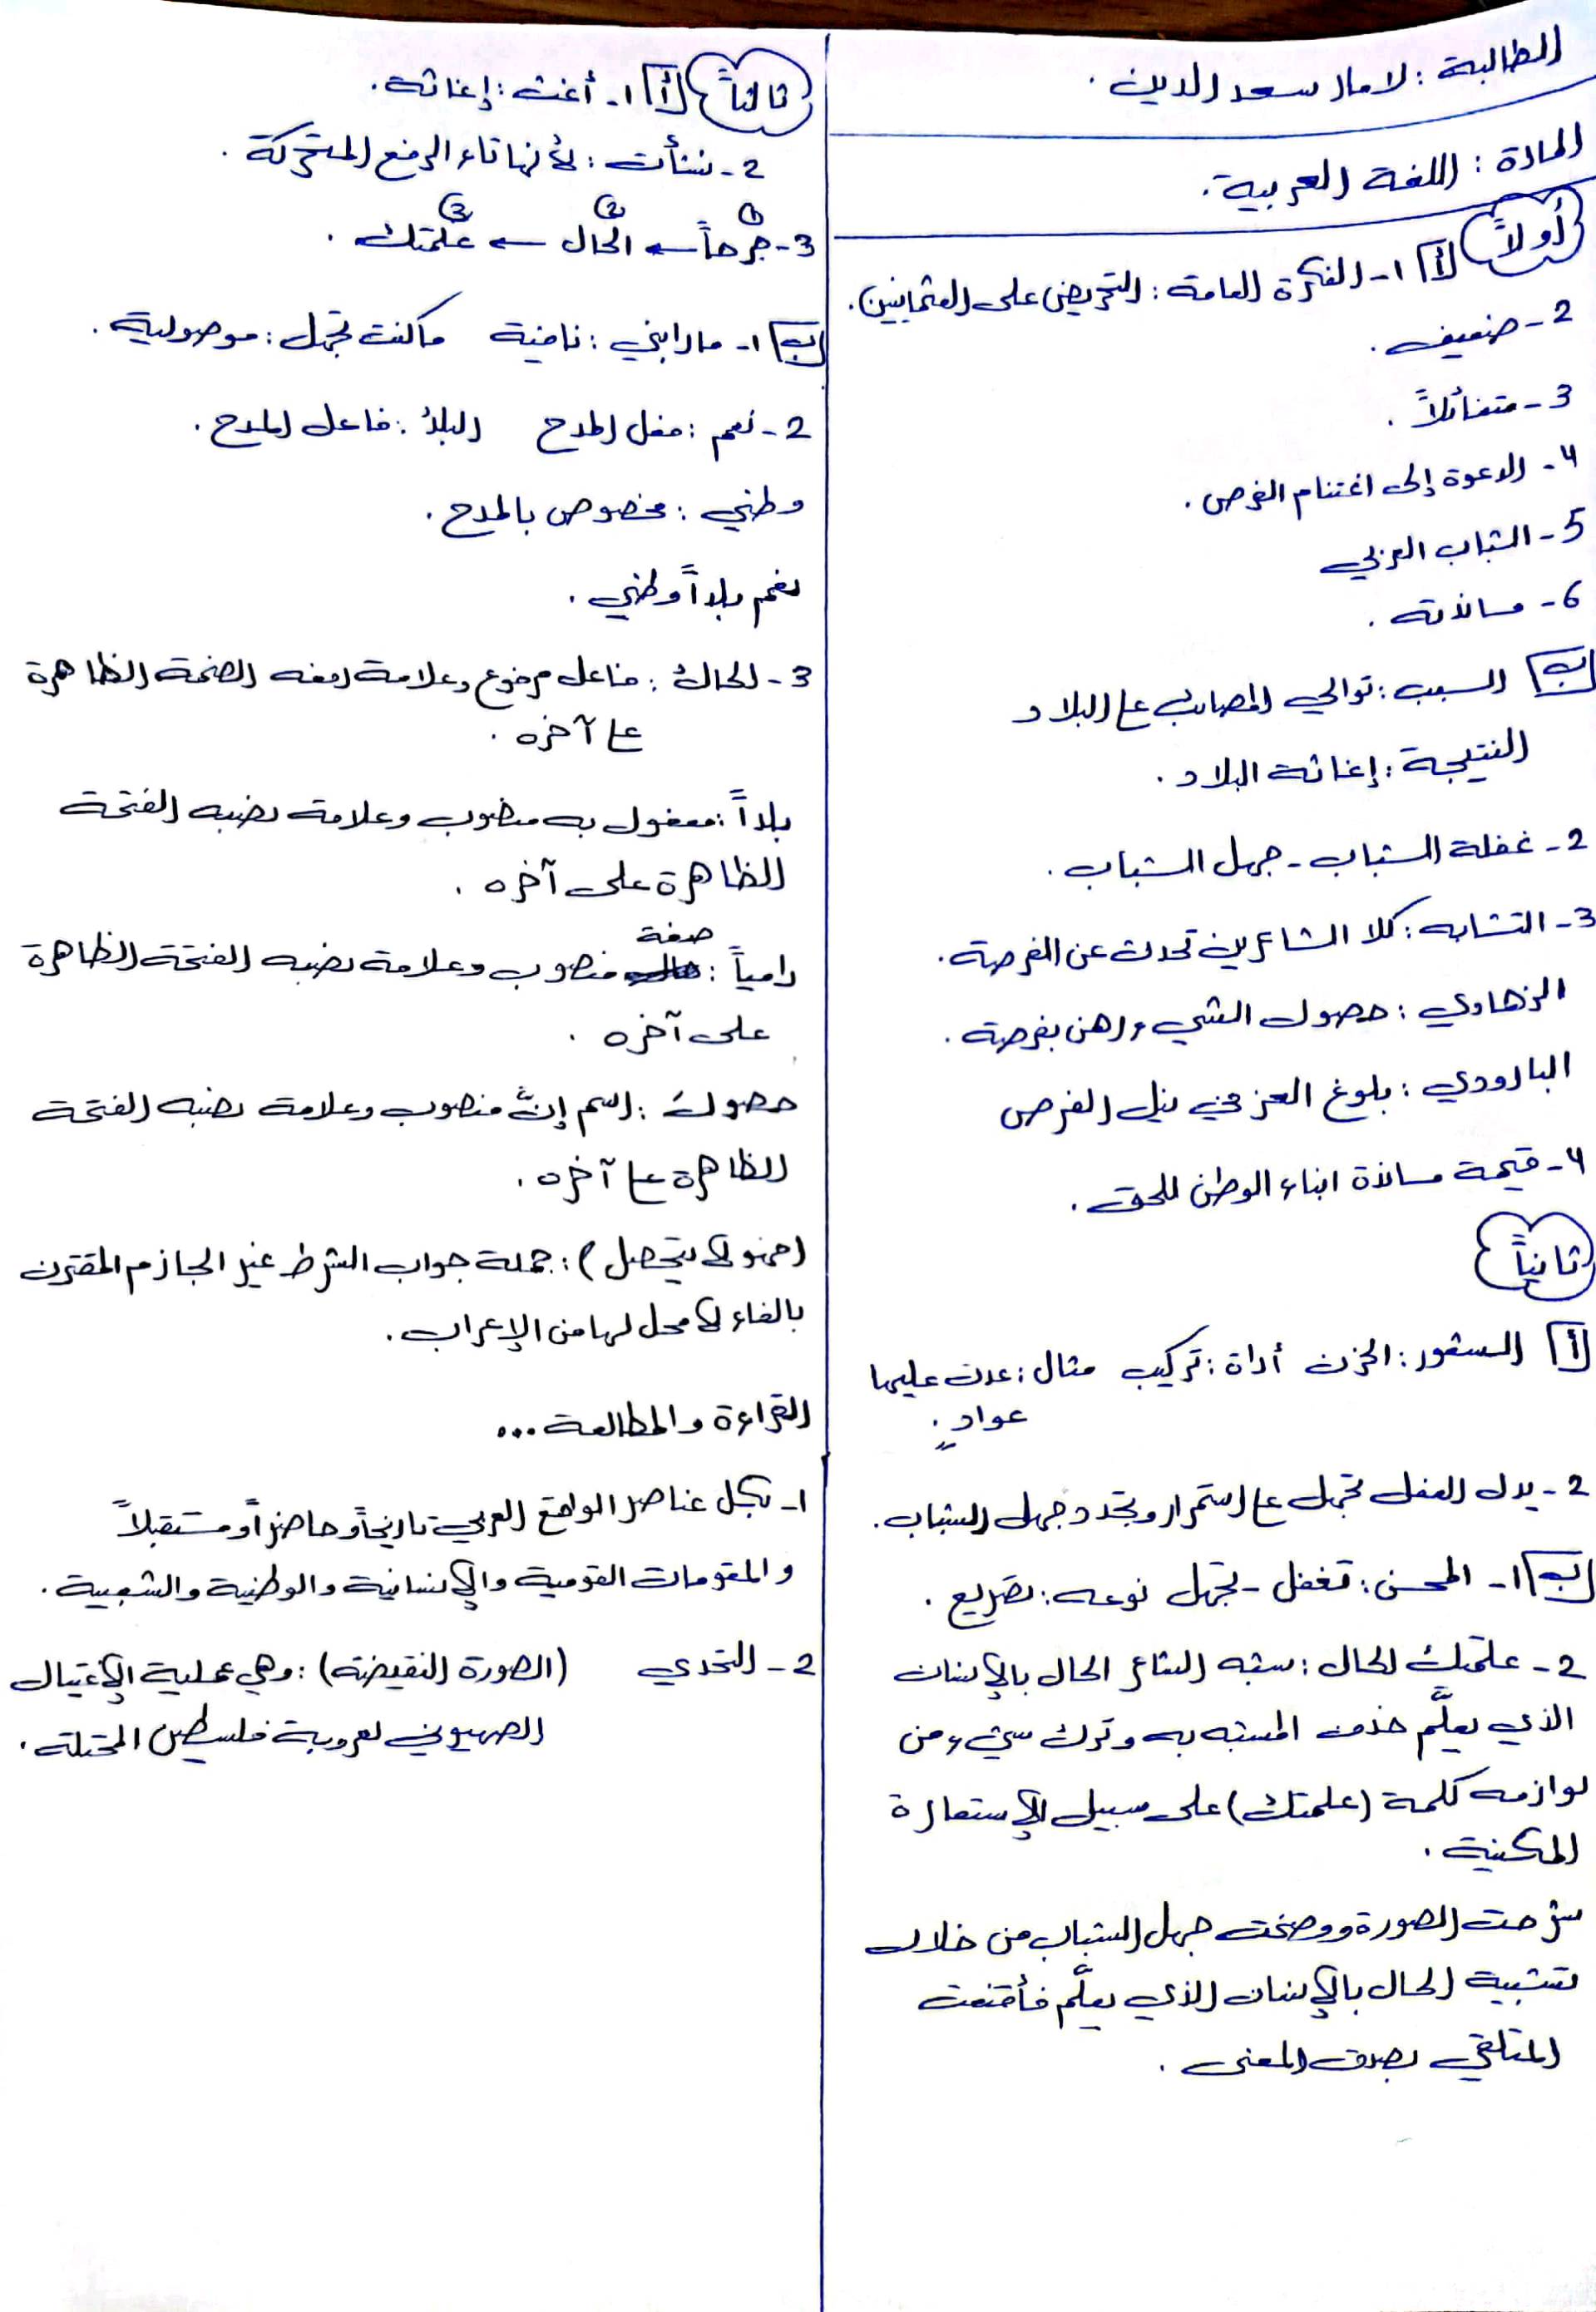 الطالبة : لامار سعد الدين .
المادة : اللغة العربية .
أولاً أ 1- الفكرة العامة : التحريض على العثمانيين .
2- ضعيف .
3- متفائلاً .
4- الدعوة إلى اغتنام الفرص .
5- الشباب العربي
6- مساندته .
ب السبب : توالي المصائب على البلاد
النتيجة : إغاثة البلاد .
2- غفلة الشباب - جهل الشباب .
3- التشابه : كلا الشاعرين تحدث عن الفرصة .
الزهاوي : حصول الشيء رهن بفرصة .
البارودي : بلوغ العز في نيل الفرص
4- قيمة مساندة ابناء الوطن للحق .
ثانياً
أ الشعور : الحزن أداة : تركيب مثال : عدت عليها
عوادٍ .
2- يدل الفعل تجهل على استمرار وتجدد جهل الشباب .
ب 1- المحسن : تغفل - تجهل نوعه : تصريع .
2- علمتك الحال : شبه الشاعر الحال بالإنسان
الذي يعلَّم حذف المشبه به وترك شيء من
لوازمه كلمة (علمتك) على سبيل الإستعارة
المكنية .
شرحت الصورة ووضحت جهل الشباب من خلال
تشبيه الحال بالإنسان الذي يعلَّم فأقنعت
المتلقي بصدق المعنى .
ثالثاً أ 1- أغث : إغاثة .
2- نشأت : لأنها تاء الرفع المتحركة .
① ② ③
3- جرحاً ← الحال ← علمتك .
ب 1- مارابني : نافية ماكنت تجهل : موصولية .
2- نعم : فعل المدح البلدُ : فاعل المدح .
وطني : مخصوص بالمدح .
نعم بلداً وطني .
3- الحالُ : فاعل مرفوع وعلامة رفعه الضمة الظاهرة
على آخره .
بلداً : مفعول به منصوب وعلامة نصبه الفتحة
الظاهرة على آخره .
صفة
رامياً : منصوب وعلامة نصبه الفتحة الظاهرة
على آخره .
حصولَ : اسم إنَّ منصوب وعلامة نصبه الفتحة
الظاهرة على آخره .
(فهو لا يتحصل) : جملة جواب الشرط غير الجازم المقترن
بالفاء لا محل لها من الإعراب .
القراءة والمطالعة ...
1- بكل عناصر الواقع العربي تاريخاً وحاضراً ومستقبلاً
والمقومات القومية والإنسانية والوطنية والشعبية .
2- التحدي (الصورة النقيضة) : وهي عملية الإغتيال
الصهيوني لعروبة فلسطين المحتلة .